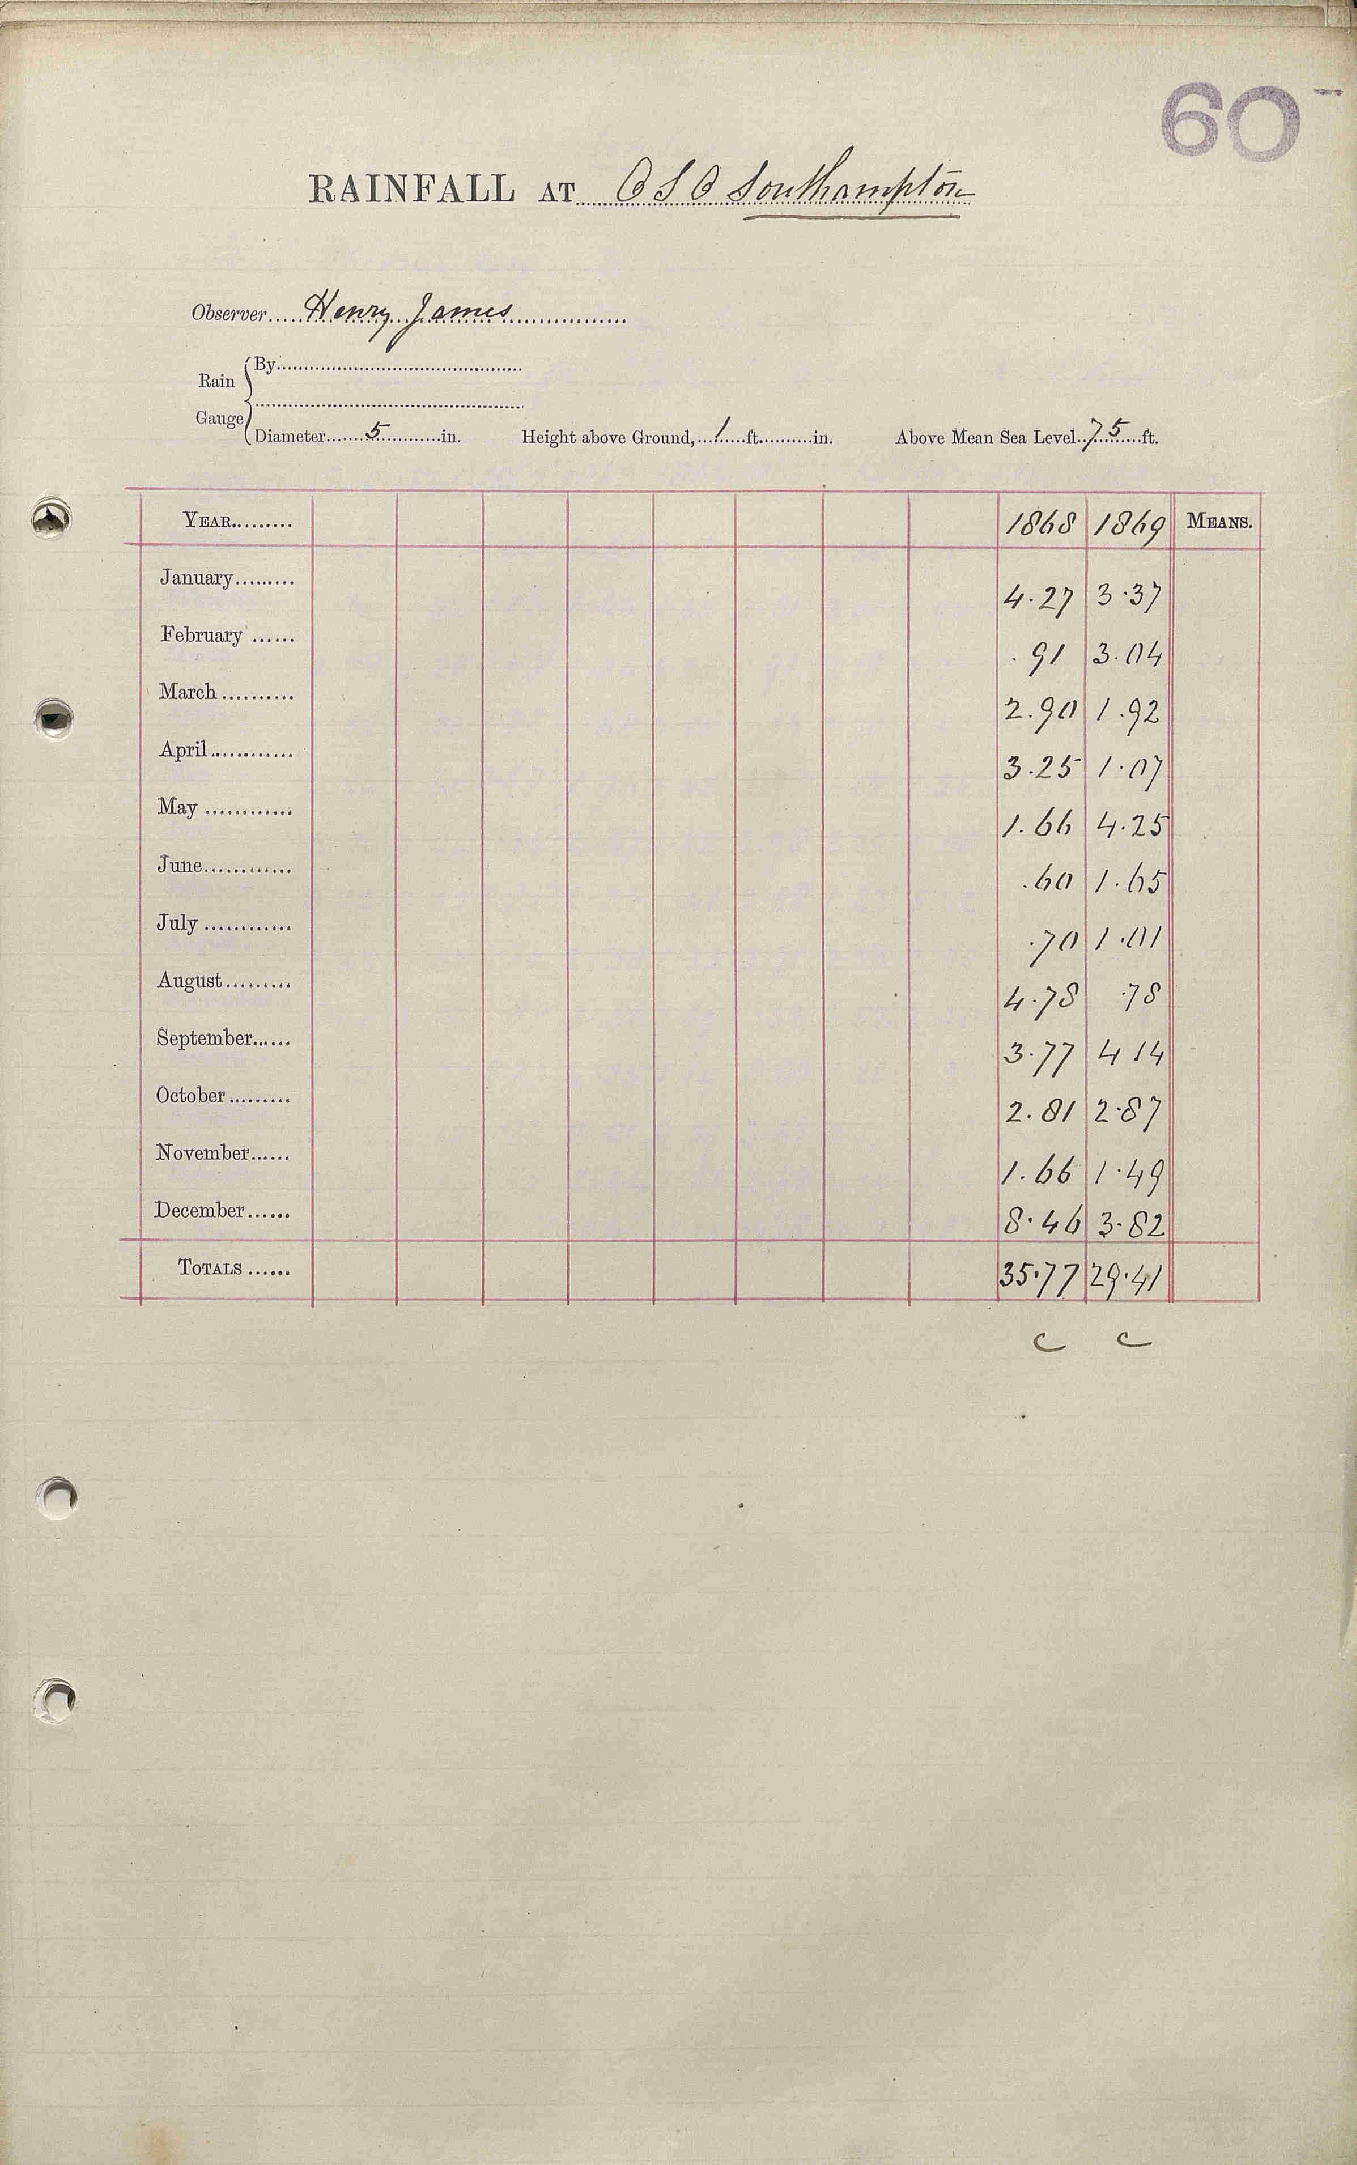 60
RAINFALL AT OSO Southampton
Observer Henry James
Rain Gauge
By
Diameter 5 in. Height above Ground, 1 ft. in. Above Mean Sea Level 75 ft.
YEAR 1868 1869 MEANS.
January 4.27 3.37
February .91 3.04
March 2.90 1.92
April 3.25 1.07
May 1.66 4.25
June .60 1.65
July .70 1.01
August 4.78 .78
September 3.77 4 14
October 2.81 2.87
November 1.66 1.49
December 8.46 3.82
TOTALS 35.77 29.41
c c